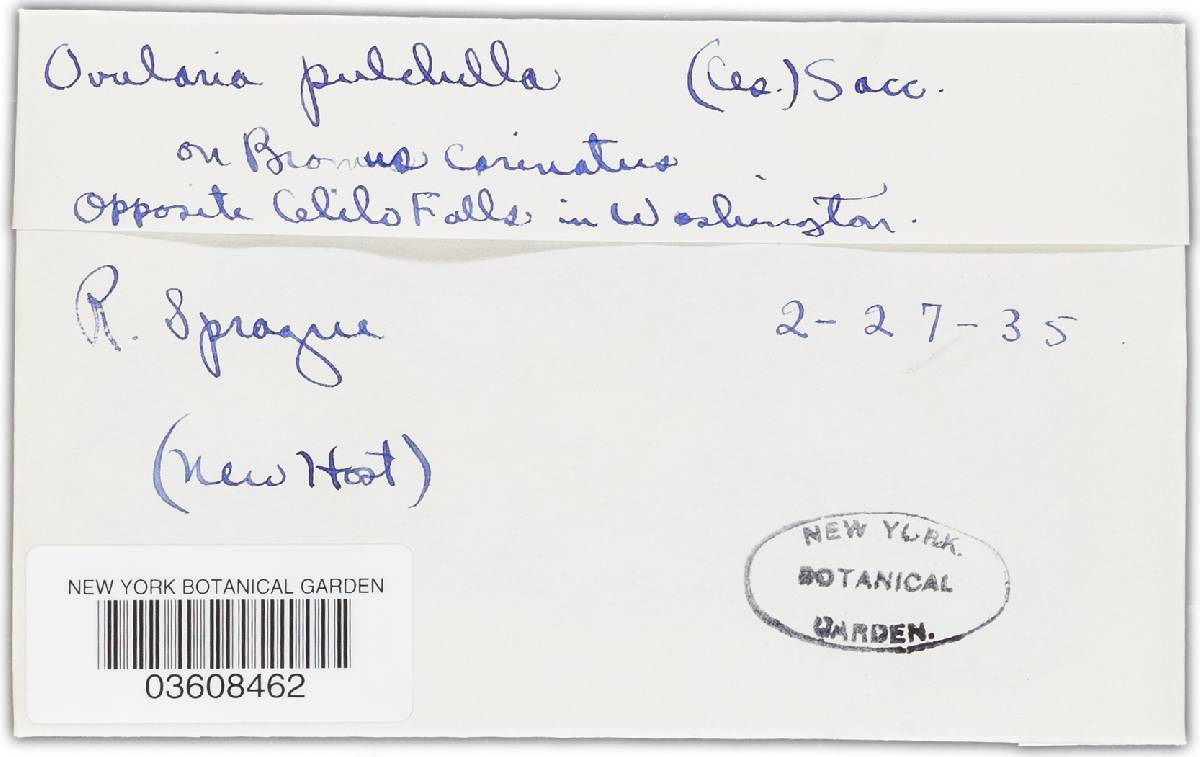 Ovularia pulchella (Ces.) Sacc.
on Bromus carinatus
Opposite Celilo Falls in Washington.
R. Sprague 2-27-35
(New Host)
NEW YORK
BOTANICAL
GARDEN.
NEW YORK BOTANICAL GARDEN
03608462